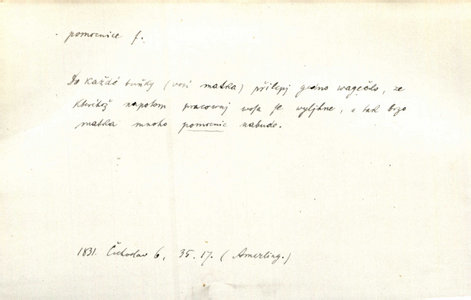 pomocnice f.
Do každé buňky (vosí matka) přilepj gedno wagečko, ze
kteréhož napotom pracownj wosa se wyljhne, a tak brzo
matka mnoho pomocnic nabude.
1831. Čechoslav 6, 35. 17. (Amerling.)